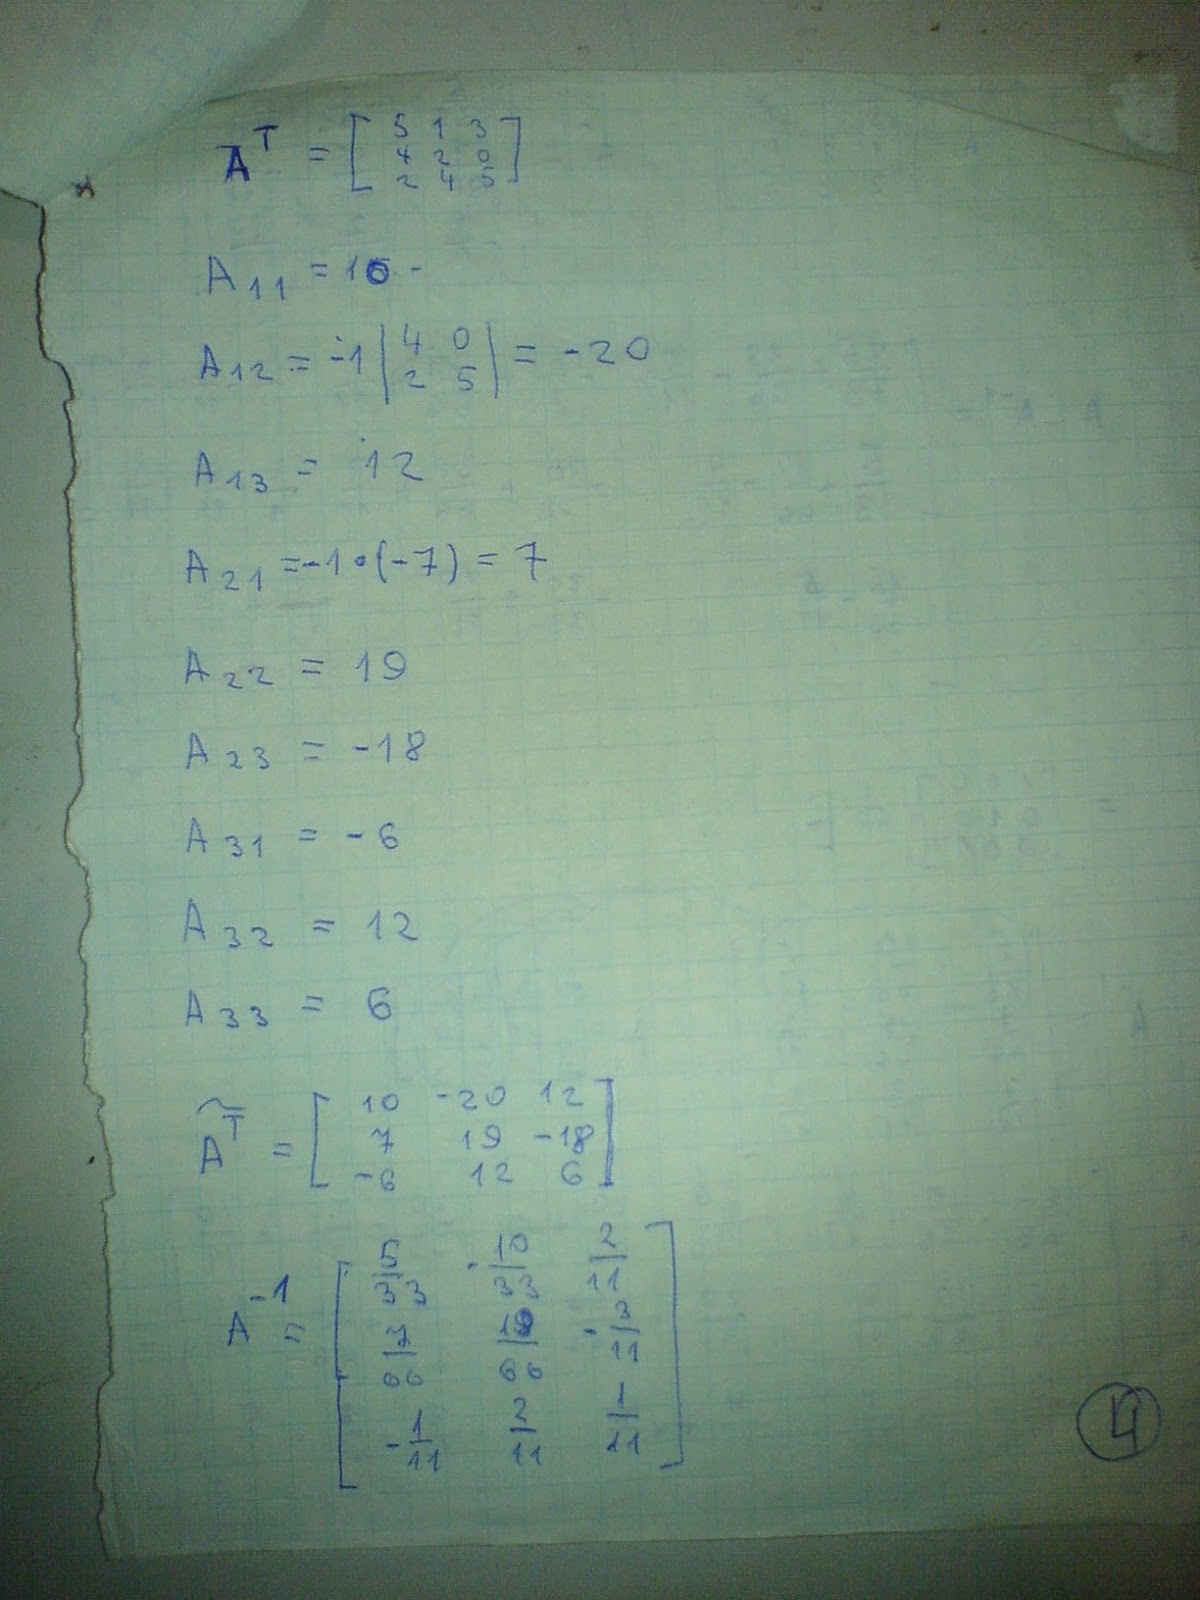 A^T = [ 5 1 3
4 2 0
2 4 5 ]
A11 = 10
A12 = -1 | 4 0
2 5 | = -20
A13 = 12
A21 = -1·(-7) = 7
A22 = 19
A23 = -18
A31 = -6
A32 = 12
A33 = 6
Ã^T = [ 10 -20 12
7 19 -18
-6 12 6 ]
A^-1 = [ 5/33 -10/33 2/11
7/66 19/66 -3/11
-1/11 2/11 1/11 ]
4